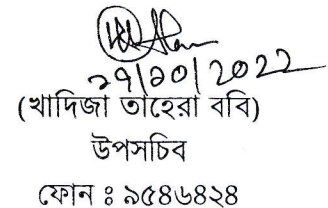 ২৭/১০/2022
(খাদিজা তাহেরা ববি)
উপসচিব
ফোন ঃ ৯৫৪৬৪২৪